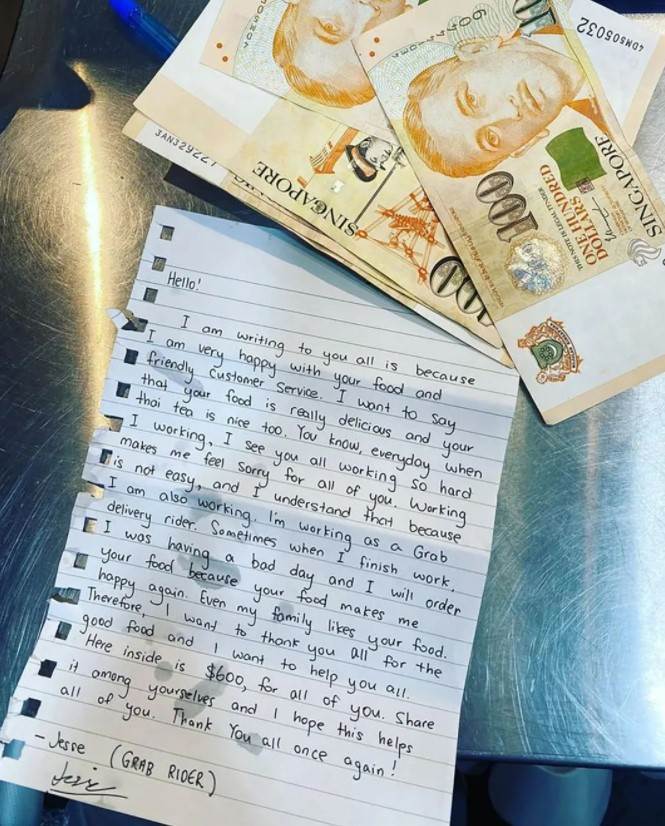 4DM505032
SINGAPORE
ONE HUNDRED
DOLLARS
THIS NOTE IS LEGAL TENDER
100
SINGAPORE
100
Hello!
I am writing to you all is because
I am very happy with your food and
friendly customer service. I want to say
that your food is really delicious and your
thai tea is nice too. You know, everyday when
I working, I see you all working so hard
makes me feel sorry for all of you. Working
is not easy, and I understand that because
I am also working. I'm working as a Grab
delivery rider. Sometimes when I finish work,
I was having a bad day and I will order
your food because your food makes me
happy again. Even my family likes your food.
Therefore, I want to thank you all for the
good food and I want to help you all.
Here inside is $600, for all of you. Share
it among yourselves and I hope this helps
all of you. Thank You all once again!
- Jesse (GRAB RIDER)